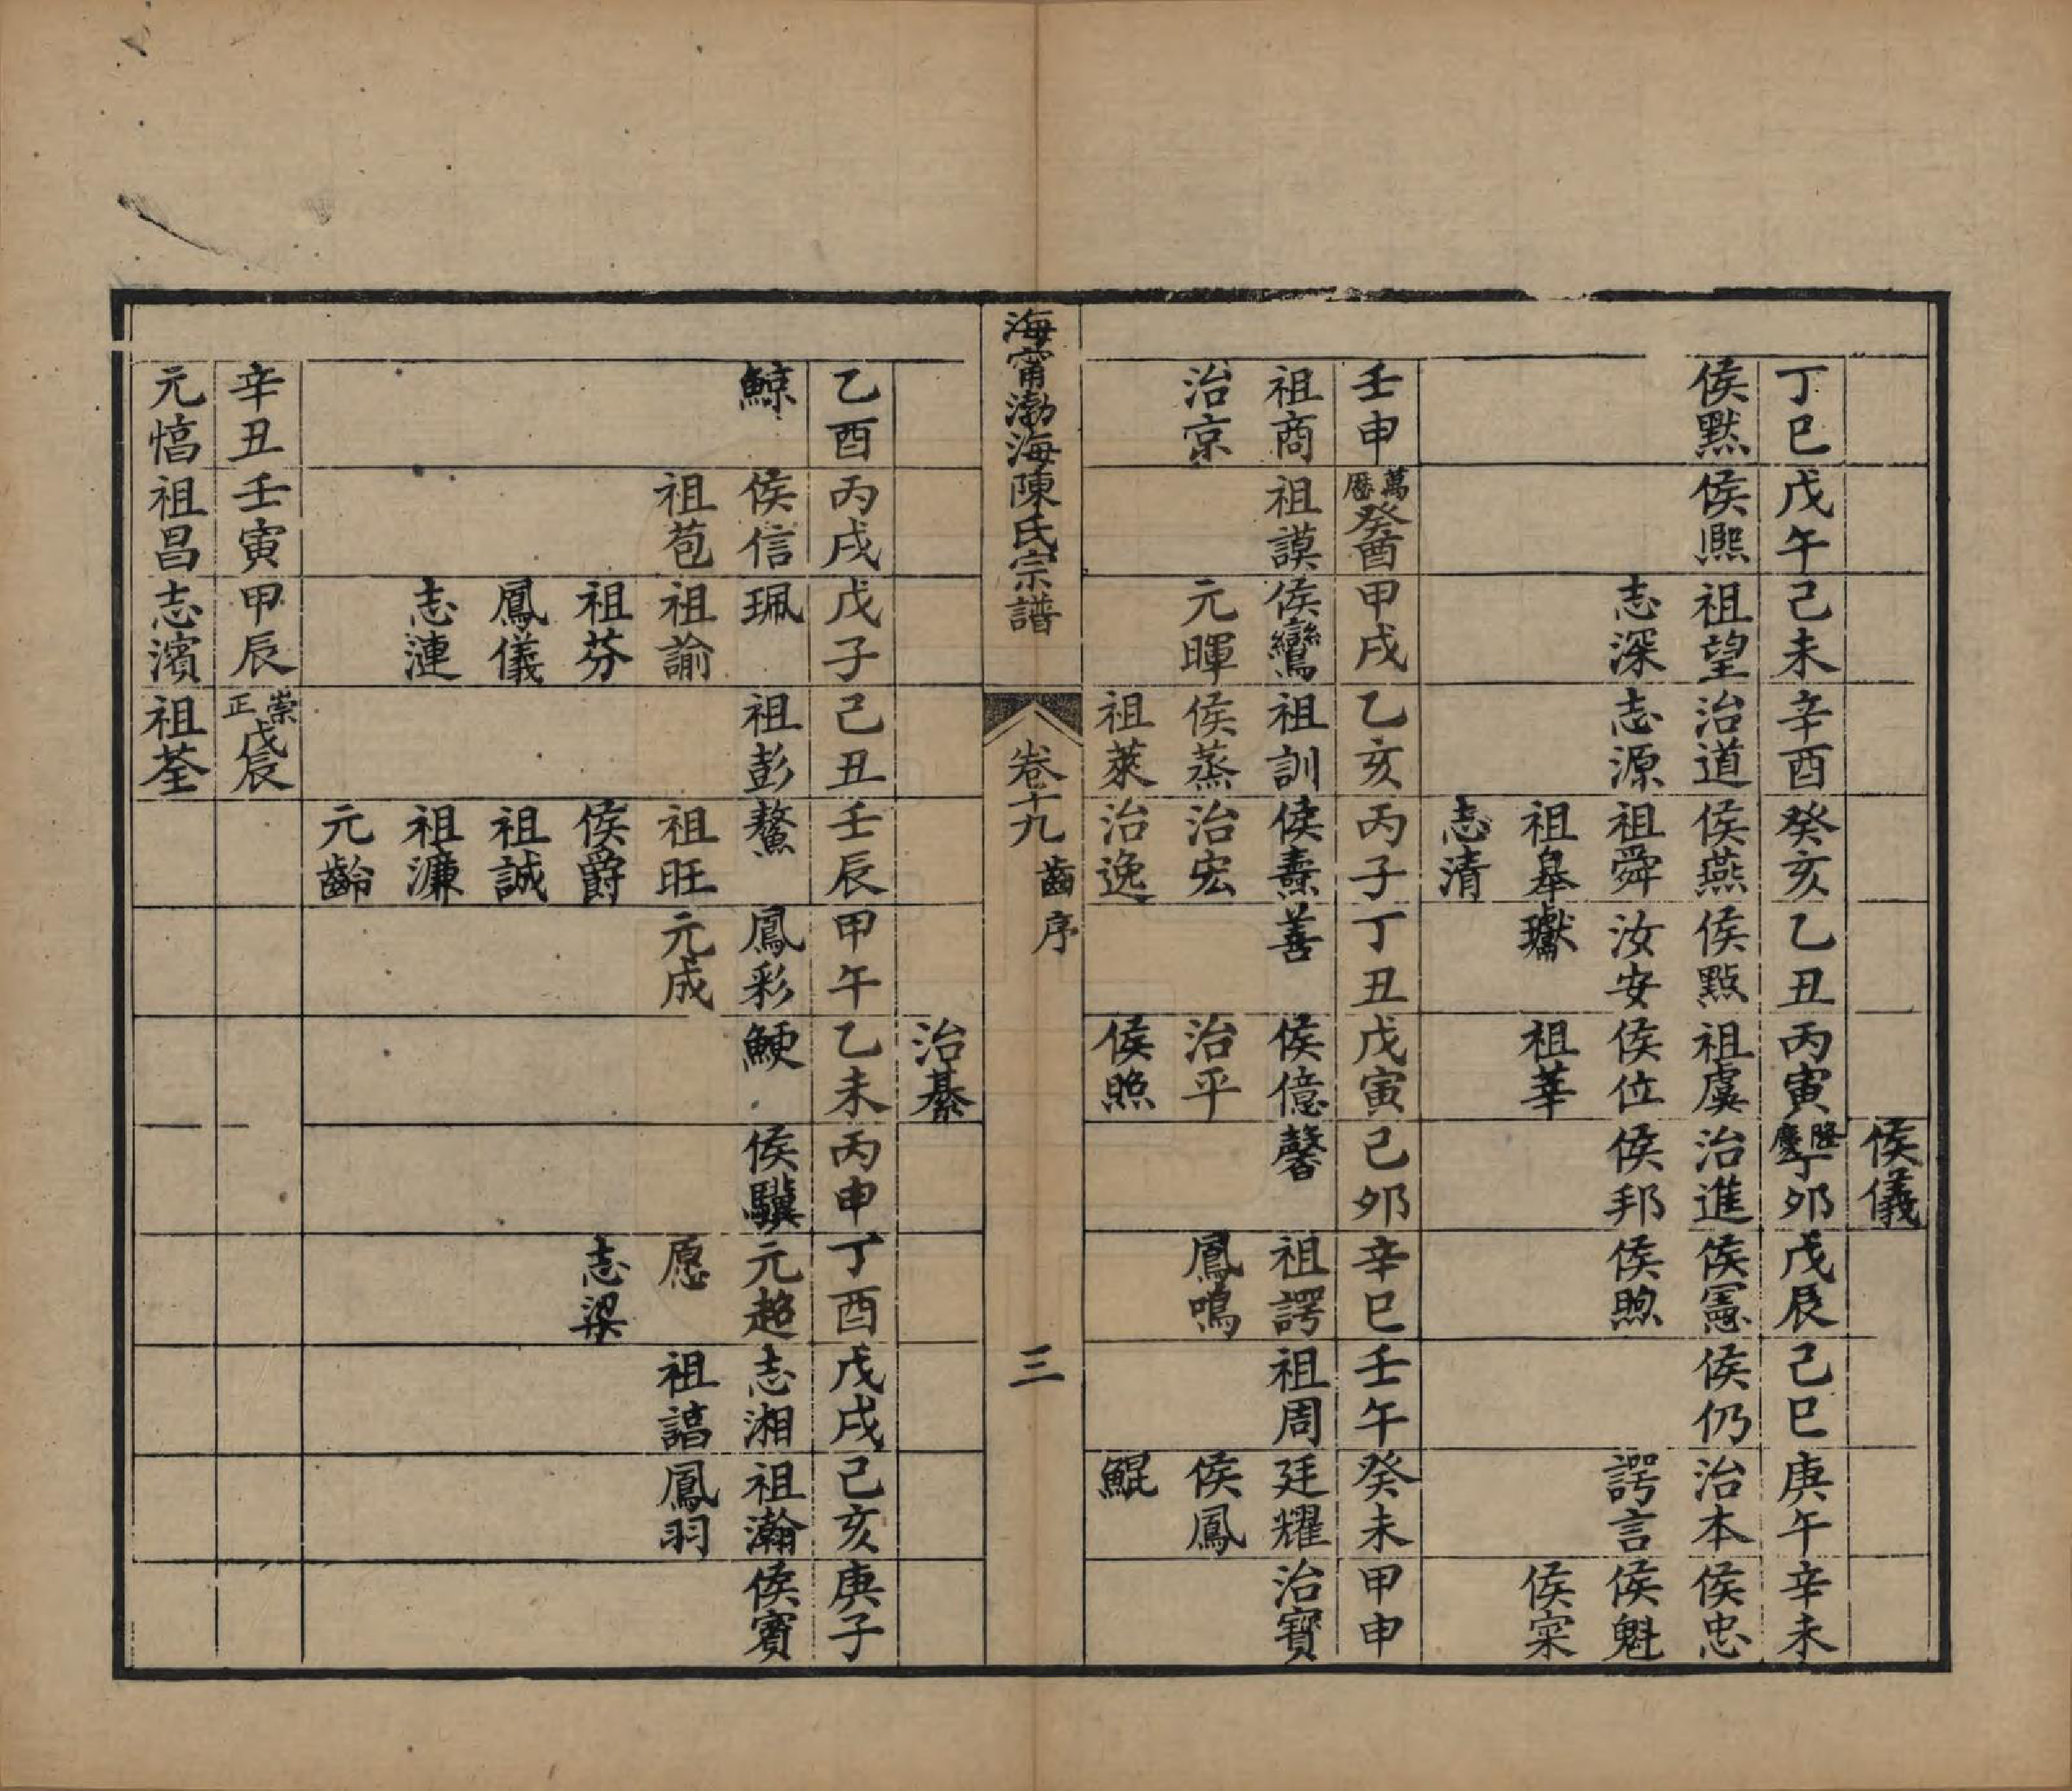 侯儀
丁巳 戊午 己未 辛酉 癸亥 乙丑 丙寅 隆慶丁卯 戊辰 己巳 庚午 辛未
侯黙 侯熙 祖望 治道 侯燕 侯點 祖虞 治進 侯憲 侯仍 治本 侯忠
志深 志源 祖舜 汝安 侯位 侯邦 侯煦 諤言 侯魁
祖皋 瓛 祖華 侯寀
志清
壬申 萬曆癸酉 甲戌 乙亥 丙子 丁丑 戊寅 己卯 辛巳 壬午 癸未 甲申
祖商 祖謨 侯鸞 祖訓 侯燾 善 侯億 馨 祖諤 祖周 廷耀 治寶
治京 元暉 侯蒸 治宏 治平 鳳鳴 侯鳳
祖萊 治逸 侯照 鯤
海甯渤海陳氏宗譜 卷十九 齒序 三
治綦
乙酉 丙戌 戊子 己丑 壬辰 甲午 乙未 丙申 丁酉 戊戌 己亥 庚子
鯨 侯信 珮 祖彭 鰲 鳳彩 鯁 侯驥 元超 志湘 祖瀚 侯賓
祖苞 祖諭 祖旺 元成 愿 祖誥 鳳羽
祖芬 侯爵 志梁
鳳儀 祖誠
志漣 祖濂
元齡
辛丑 壬寅 甲辰 崇正戊辰
元愭 祖昌 志濱 祖荃